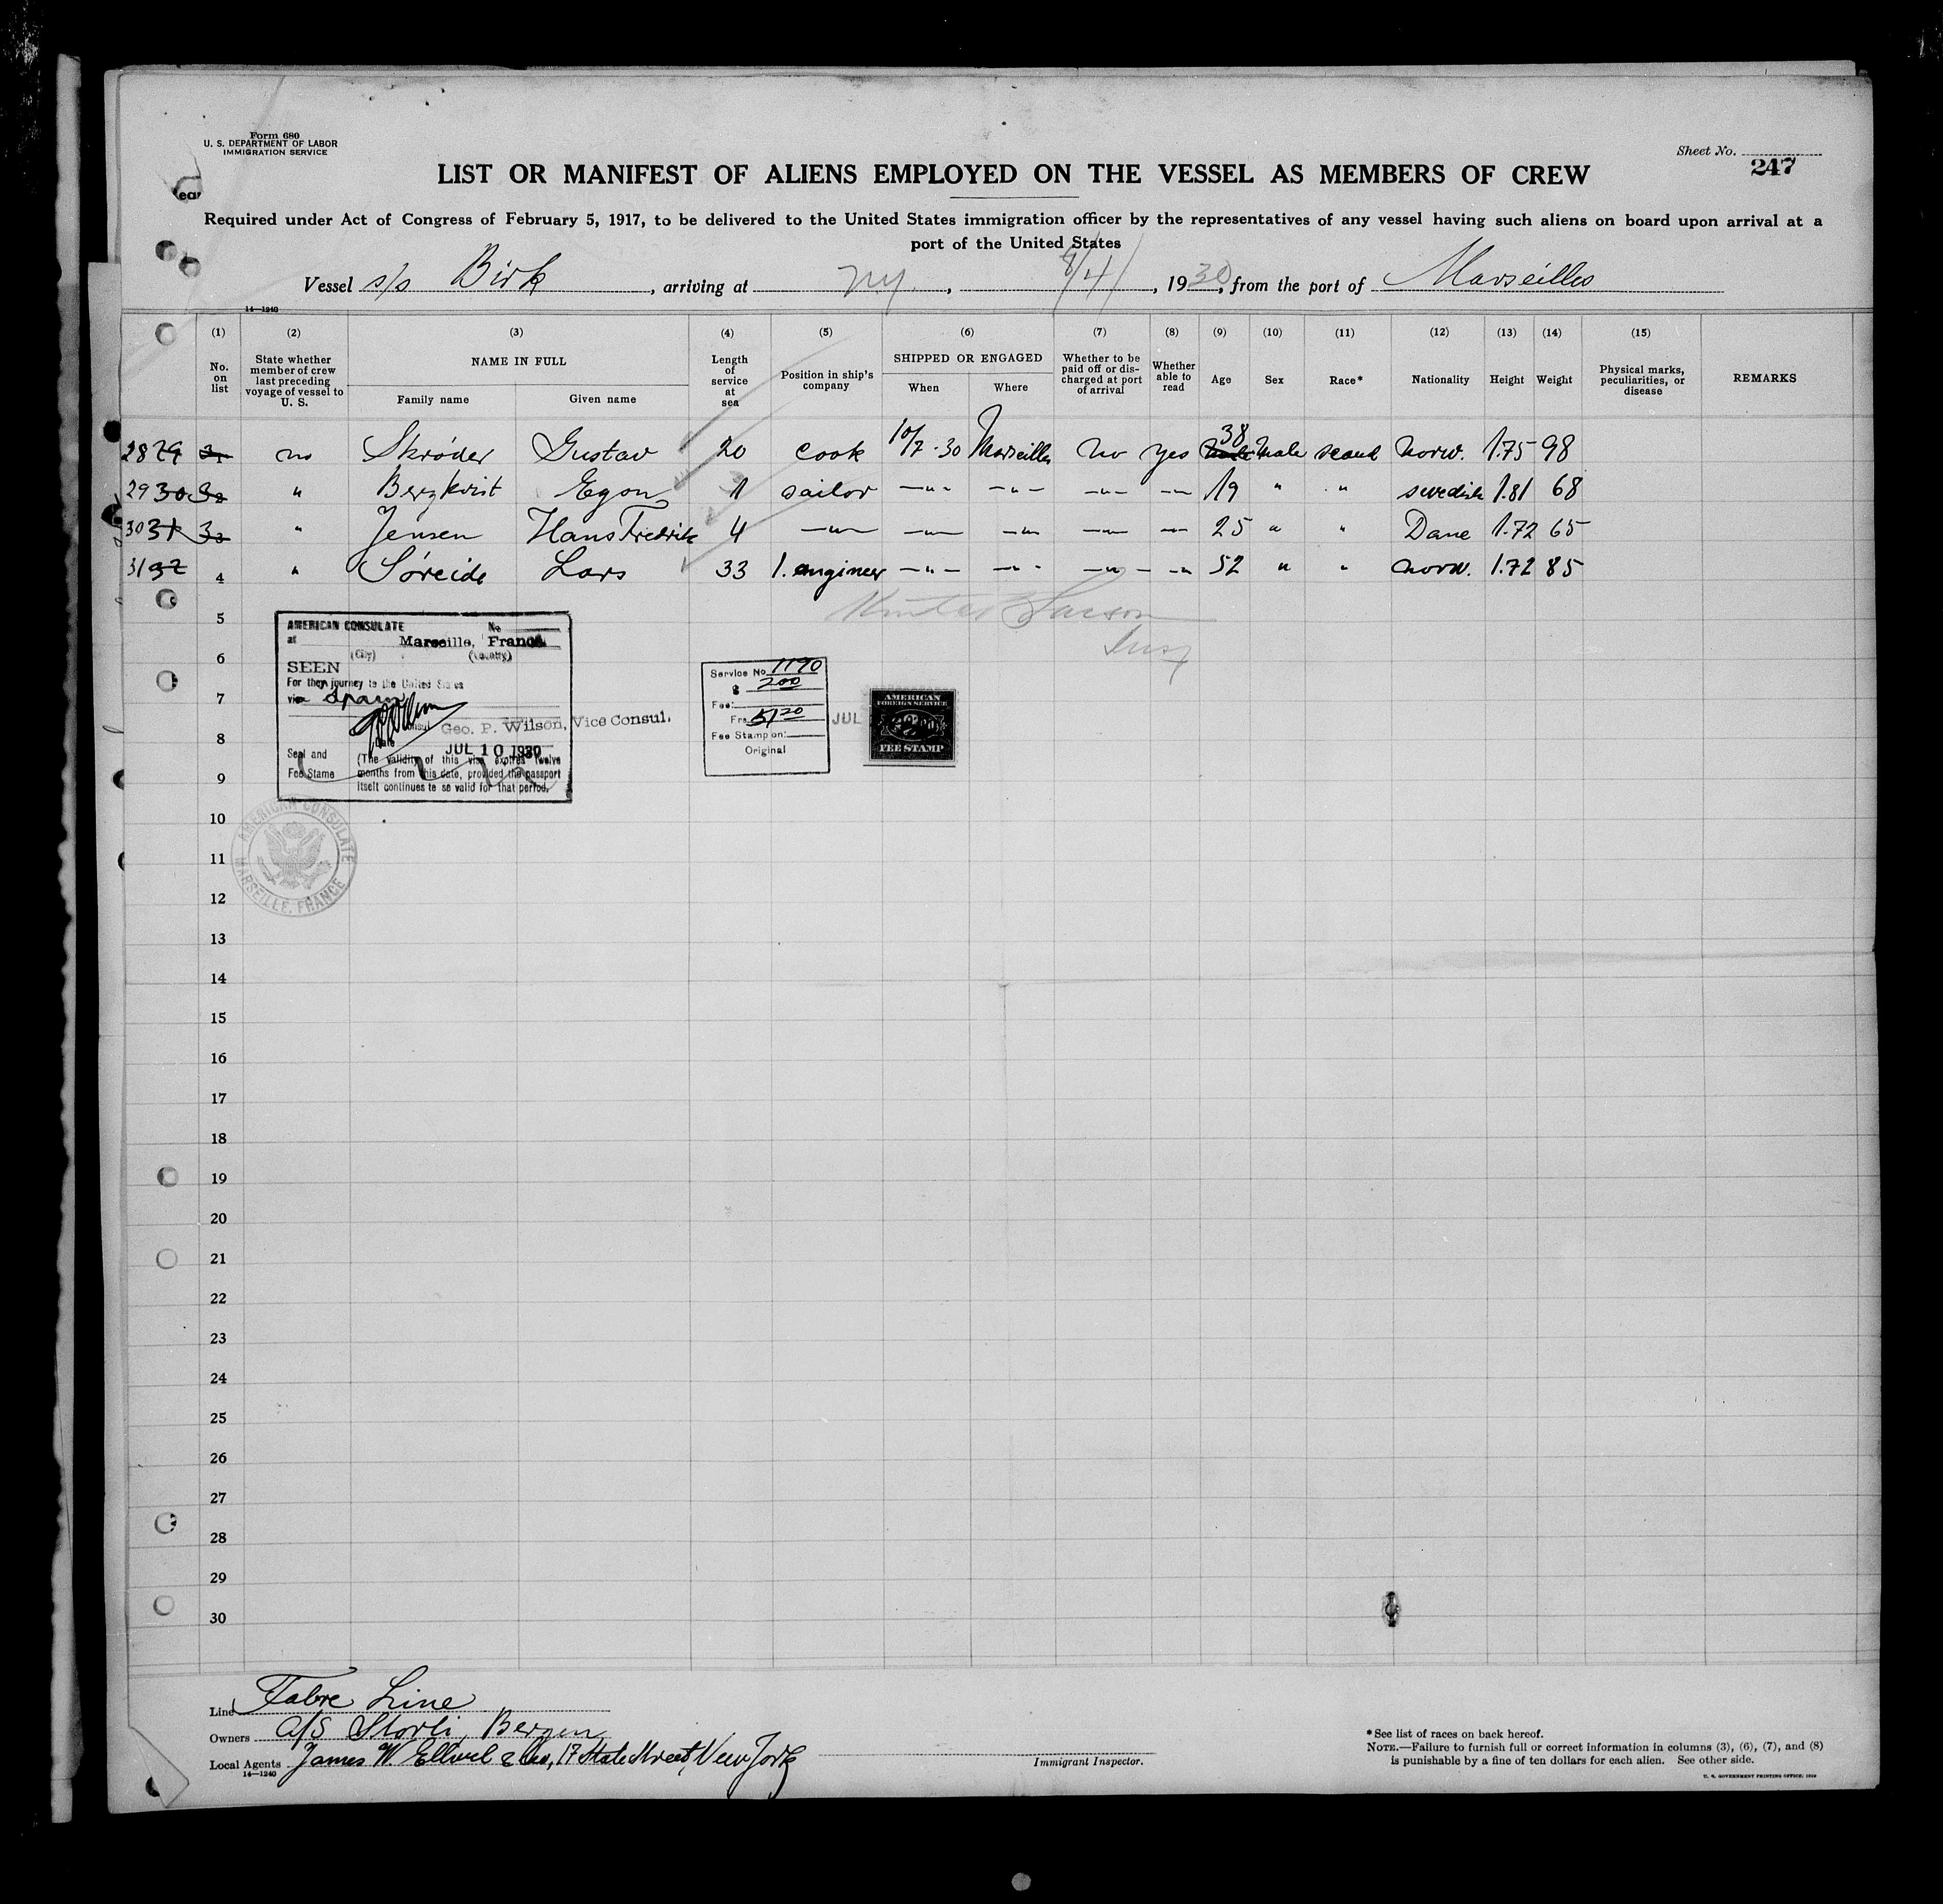 Form 680
U. S. DEPARTMENT OF LABOR
IMMIGRATION SERVICE
Sheet No.
247
ear
LIST OR MANIFEST OF ALIENS EMPLOYED ON THE VESSEL AS MEMBERS OF CREW
Required under Act of Congress of February 5, 1917, to be delivered to the United States immigration officer by the representatives of any vessel having such aliens on board upon arrival at a
port of the United States
Vessel s/s Birk, arriving at NY., 8/4/, 1930, from the port of Marseilles
14—1240
(1) (2) (3) (4) (5) (6) (7) (8) (9) (10) (11) (12) (13) (14) (15)
No. on list State whether member of crew last preceding voyage of vessel to U. S. NAME IN FULL Length of service at sea Position in ship's company SHIPPED OR ENGAGED Whether to be paid off or discharged at port of arrival Whether able to read Age Sex Race* Nationality Height Weight Physical marks, peculiarities, or disease REMARKS
Family name Given name When Where
28 29 31 no Skrøder Gustav 20 cook 10/7-30 Marseilles No yes 38 male scand Norw. 1.75 98
29 30 32 " Bergkvist Egon 1 sailor —"— —"— —"— —"— 19 " " swedish 1.81 68
30 31 33 " Jensen Hans Fredrik 4 —"— —"— —"— —"— —"— 25 " " Dane 1.72 65
31 32 4 " Søreide Lars 33 1. engineer —"— —"— —"— —"— 52 " " Norw. 1.72 85
5
6
7
8
9
10
11
12
13
14
15
16
17
18
19
20
21
22
23
24
25
26
27
28
29
30
AMERICAN CONSULATE No
at Marseille, France
(City) (Country)
SEEN
For the journey to the United States
via Spain
Consul Geo. P. Wilson, Vice Consul.
Date JUL 10 1930
Seal and
Fee Stame
(The validity of this visa expires Twelve
months from this date, provided the passport
itselt continues te se valid for that period.
AMERICAN CONSULATE
MARSEILLE, FRANCE
Service No 1190
$ 200
Fee:
Frs 5120
Fee Stamp on:
Original
JUL
AMERICAN
FOREIGN SERVICE
FEE STAMP
Larson
Insp
Line Fabre Line
Owners A/S Storli, Bergen
Local Agents James W. Elwel & Co, 17 State Street, New York
14—1240
Immigrant Inspector.
*See list of races on back hereof.
NOTE.—Failure to furnish full or correct information in columns (3), (6), (7), and (8)
is punishable by a fine of ten dollars for each alien. See other side.
U. S. GOVERNMENT PRINTING OFFICE: 1929